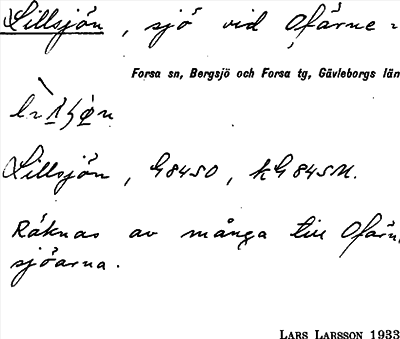 Lillsjön, sjö vid Ofärne=
Forsa sn, Bergsjö och Forsa tg, Gävleborgs län
Lillsjön, G84SO, kG84SM.
Räknas av många till Ofärn,
sjöarna.
LARS LARSSON 1933